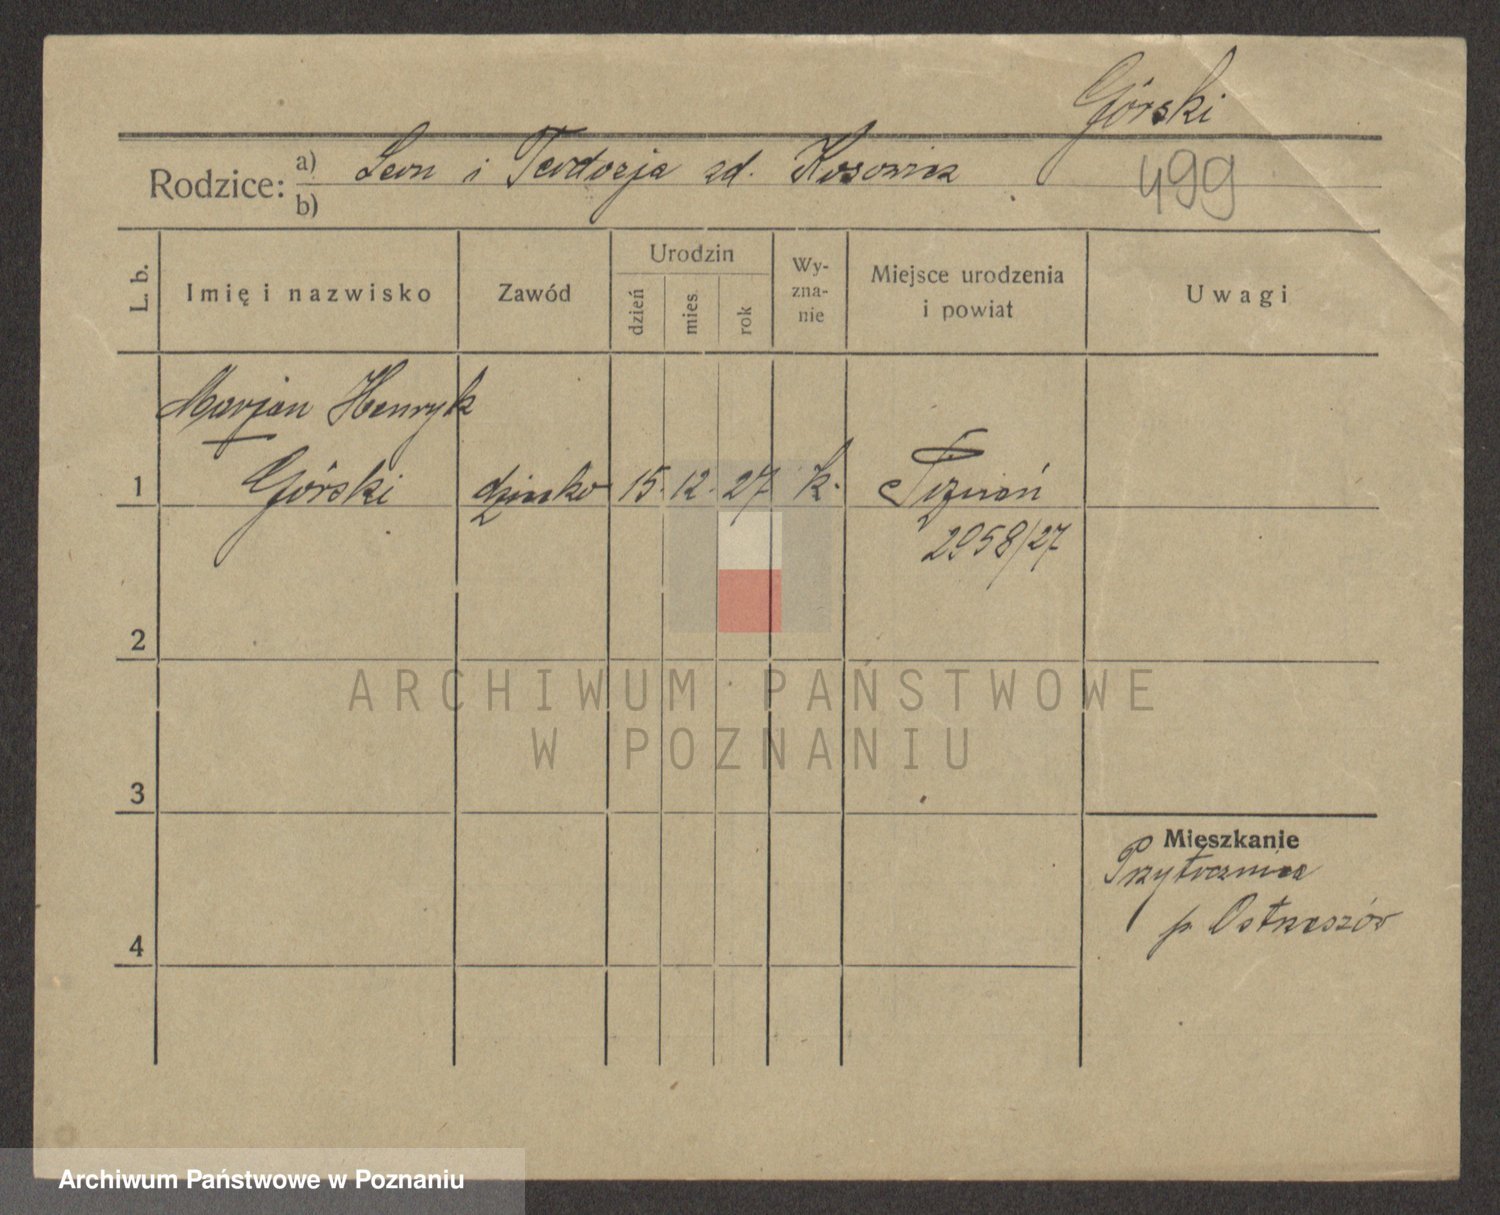 Górski
Rodzice: a) Leon i Teodozja zd. Kosowicz
b)
499
L. b.
Imię i nazwisko
Zawód
Urodzin
dzień
mies.
rok
Wy-
zna-
nie
Miejsce urodzenia
i powiat
Uwagi
Marjan Henryk
1 Górski dziecko 15. 12. 27 k. Poznań
2958/27
2
ARCHIWUM PAŃSTWOWE
W POZNANIU
3
Mieszkanie
Przytocznica
p. Ostrzeszów
4
Archiwum Państwowe w Poznaniu